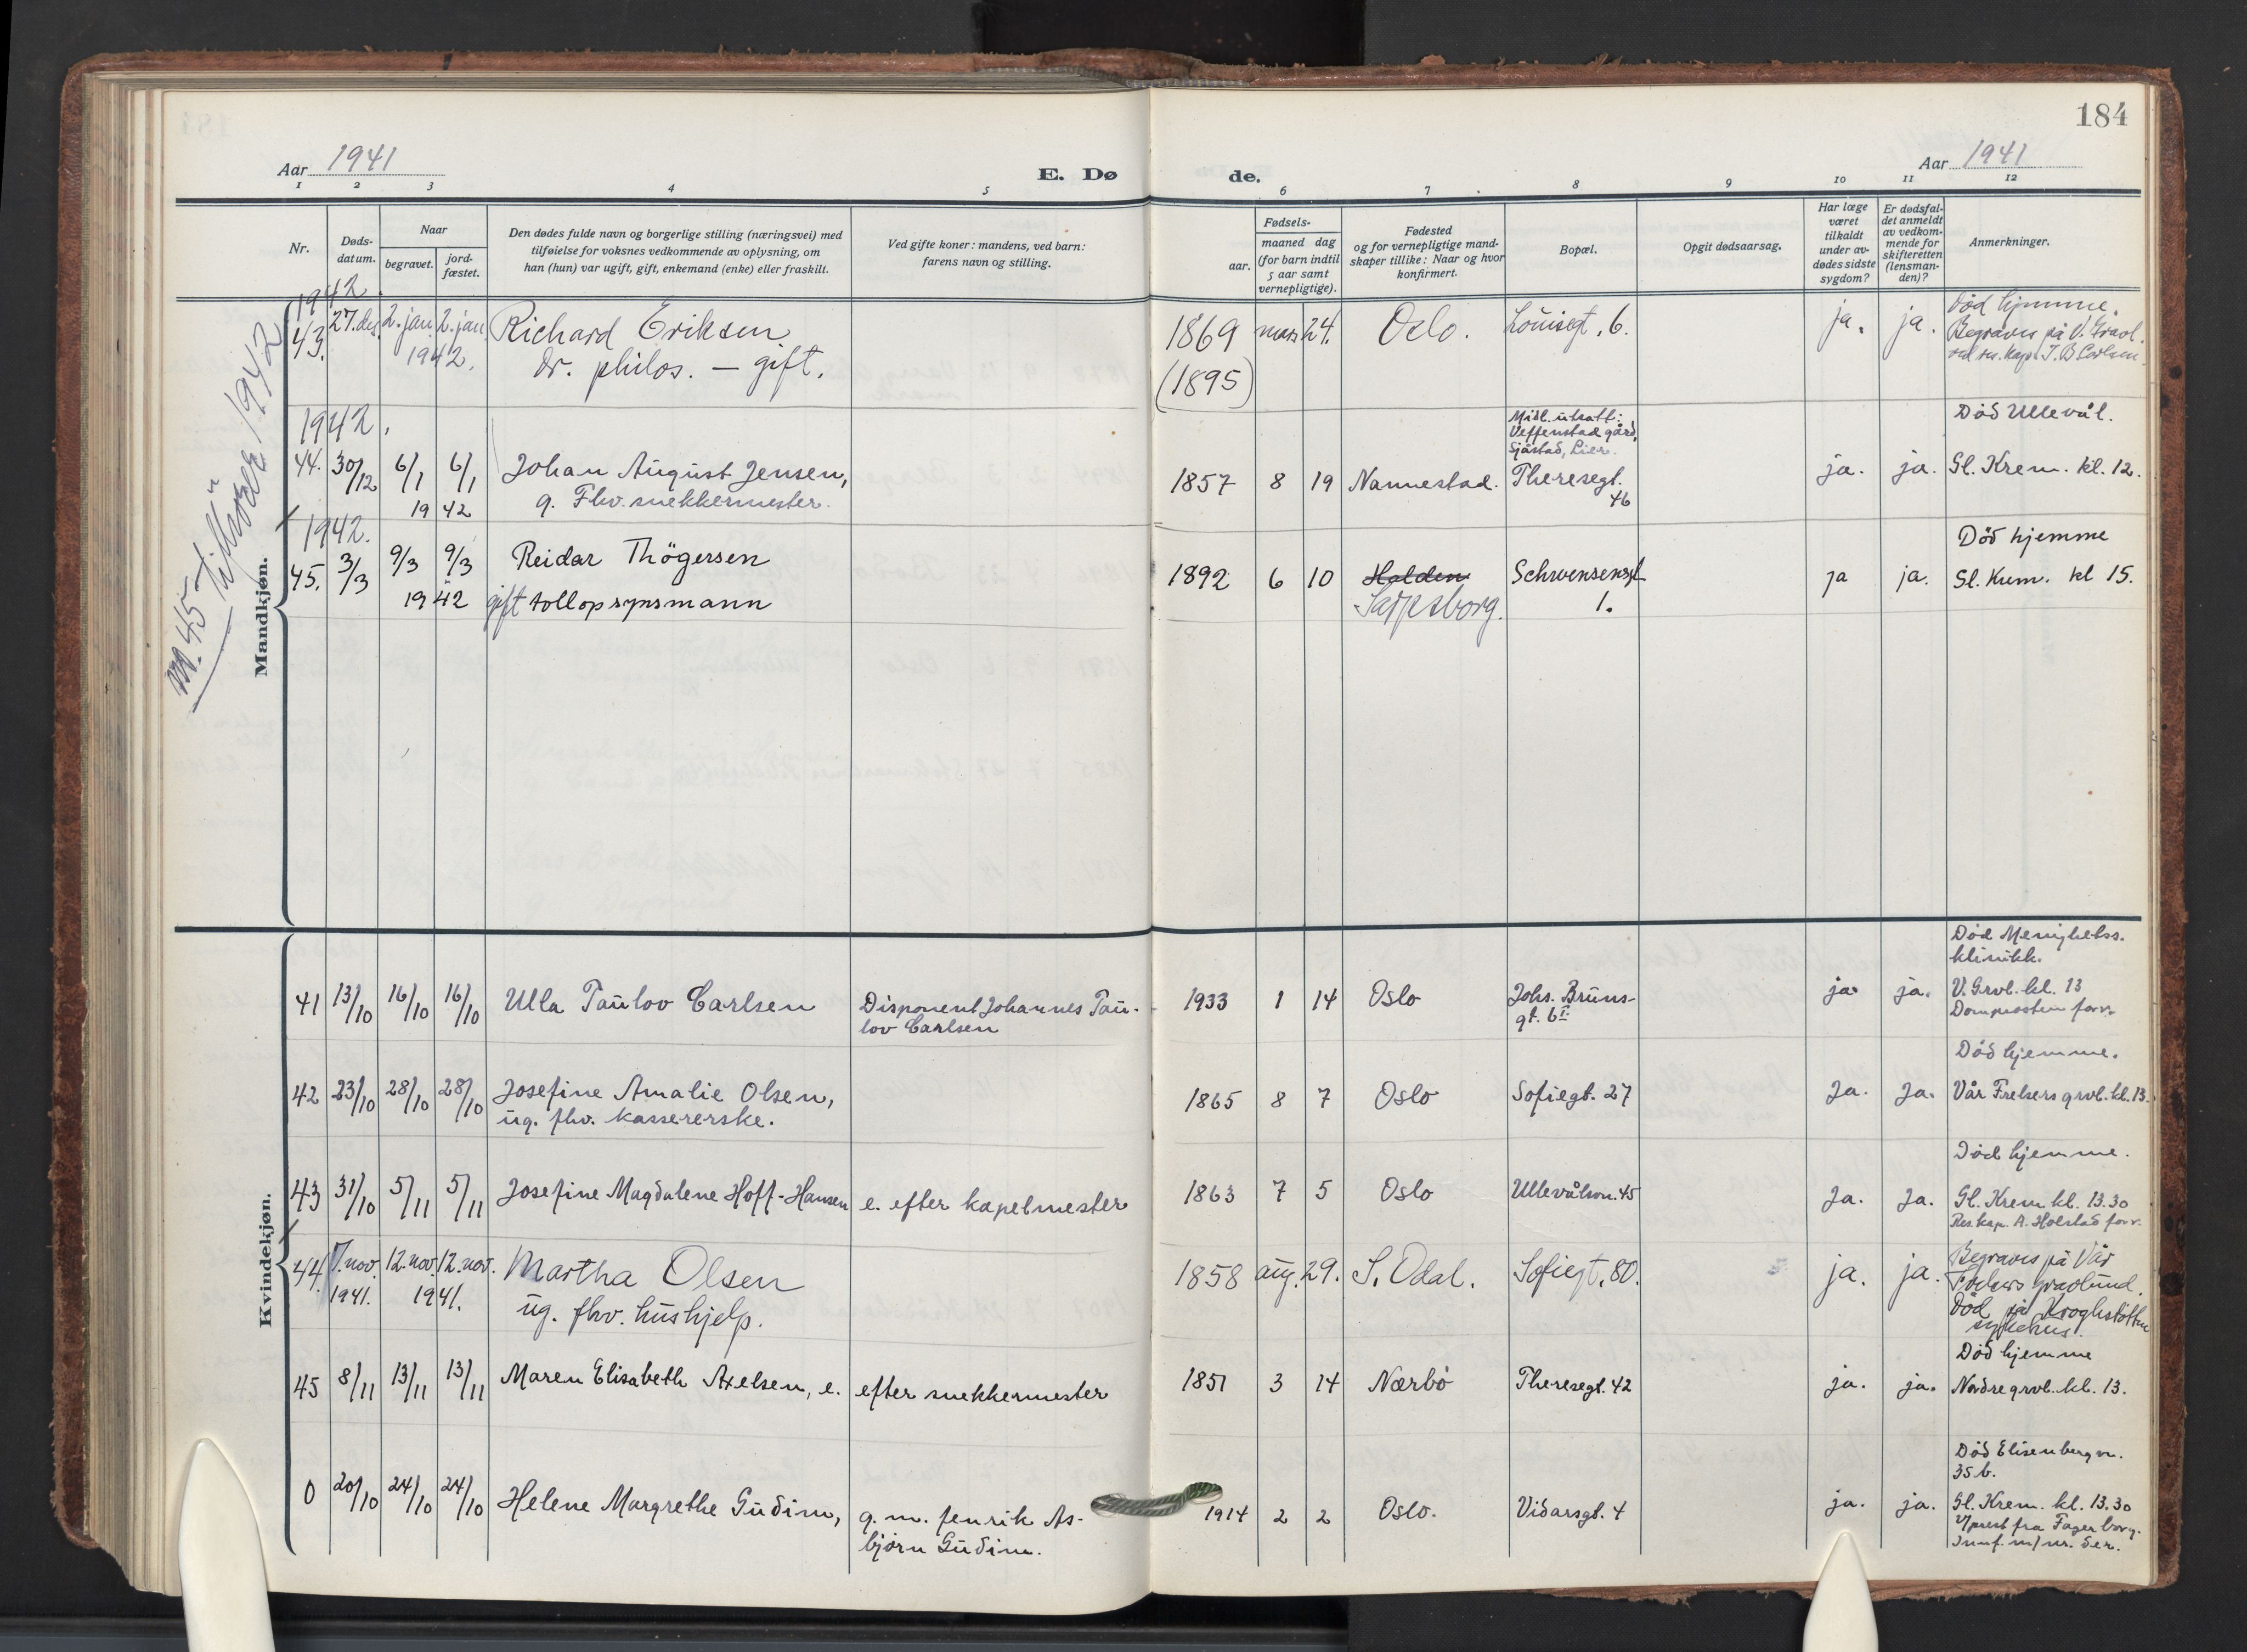 184
Aar 1941
E. Dø
de.
Aar 1941
1 2 3 4 5 6 7 8 9 10 11 12
Nr.
Døds-
datum.
Naar
begravet.
jord-
fæstet.
Den dødes fulde navn og borgerlige stilling (næringsvei) med
tilføielse for voksnes vedkommende av oplysning, om
han (hun) var ugift, gift, enkemand (enke) eller fraskilt.
Ved gifte koner: mandens, ved barn:
farens navn og stilling.
Fødsels-
aar.
maaned dag
(for barn indtil
5 aar samt
vernepligtige).
Fødested
og for vernepligtige mand-
skaper tillike: Naar og hvor
konfirmert.
Bopæl.
Opgit dødsaarsag.
Har læge
været
tilkaldt
under av-
dødes sidste
sygdom?
Er dødsfal-
det anmeldt
av vedkom-
mende for
skifteretten
(lensman-
den)?
Anmerkninger.
Mandkjøn.
nr. 45 tilhører 1942
1942.
43. 27. des. 2. jan. 2. jan. Richard Eriksen 1869 mars 24. Oslo. Louisegt. 6. ja. ja. Død hjemme.
1942. dr. philos. – gift. (1895) Begraves på V. Gravl.
1942.
Midl. utsatt:
gård,
Sjåstad, Lier.
Død Ullevål.
44. 30/12 6/1 6/1 Johan August Jensen, 1857 8 19 Nannestad. Theresegt. 46 ja. ja. Gl. Krem. kl. 12.
1942 g. Fhv. snekkermester.
1942.
Død hjemme
45. 3/3 9/3 9/3 Reidar Thögersen 1892 6 10 Halden Schwensensgt. 1. ja ja. Gl. Krem. kl 15.
1942 gift tollopsynsmann Sarpsborg.
Kvindekjøn.
Død Menighetss.
klinikk.
41 13/10 16/10 16/10 Ulla Taulov Carlsen Disponent Johannes Tau- 1933 1 14 Oslo Johs. Bruns- ja. ja. V. Grvl. kl. 13
lov Carlsen gt. 6 I. Domprosten forr.
Død hjemme.
42 23/10 28/10 28/10 Josefine Amalie Olsen, 1865 8 7 Oslo Sofiegt. 27 Ja. Ja. Vår Frelsers grvl. kl. 13.
ug. fhv. kassererske.
Død hjemme.
43 31/10 5/11 5/11 Josefine Magdalene Hoff-Hansen e. efter kapelmester 1863 7 5 Oslo Ullevålsvn. 45 Ja. Ja. Gl. Krem kl. 13.30
Res. kap. A. Holstad forr.
44. 7. nov. 12. nov. 12. nov. Martha Olsen 1858 aug. 29. S. Odal. Sofiegt. 80. ja. ja. Begraves på Vår
1941. 1941. ug. fhv. hushjelp. Frelsers gravlund.
Død på Kroghstötten
sykehus.
Død hjemme
45 8/11 13/11 13/11 Maren Elisabeth Axelsen, e. efter snekkermester 1851 3 14 Nærbö Theresegt. 42 ja. ja. Nordre grvl. kl. 13.
Død Elisenbergvn.
35 b.
0 20/10 24/10 24/10 Helene Margrethe Gudim, g. m. fenrik As- 1914 2 2 Oslo. Vidarsgt. 4 ja. ja. Gl. Krem. kl. 13.30
bjørn Gudim. v/prest fra Fagerborg.
Innf. m/ nr. der.